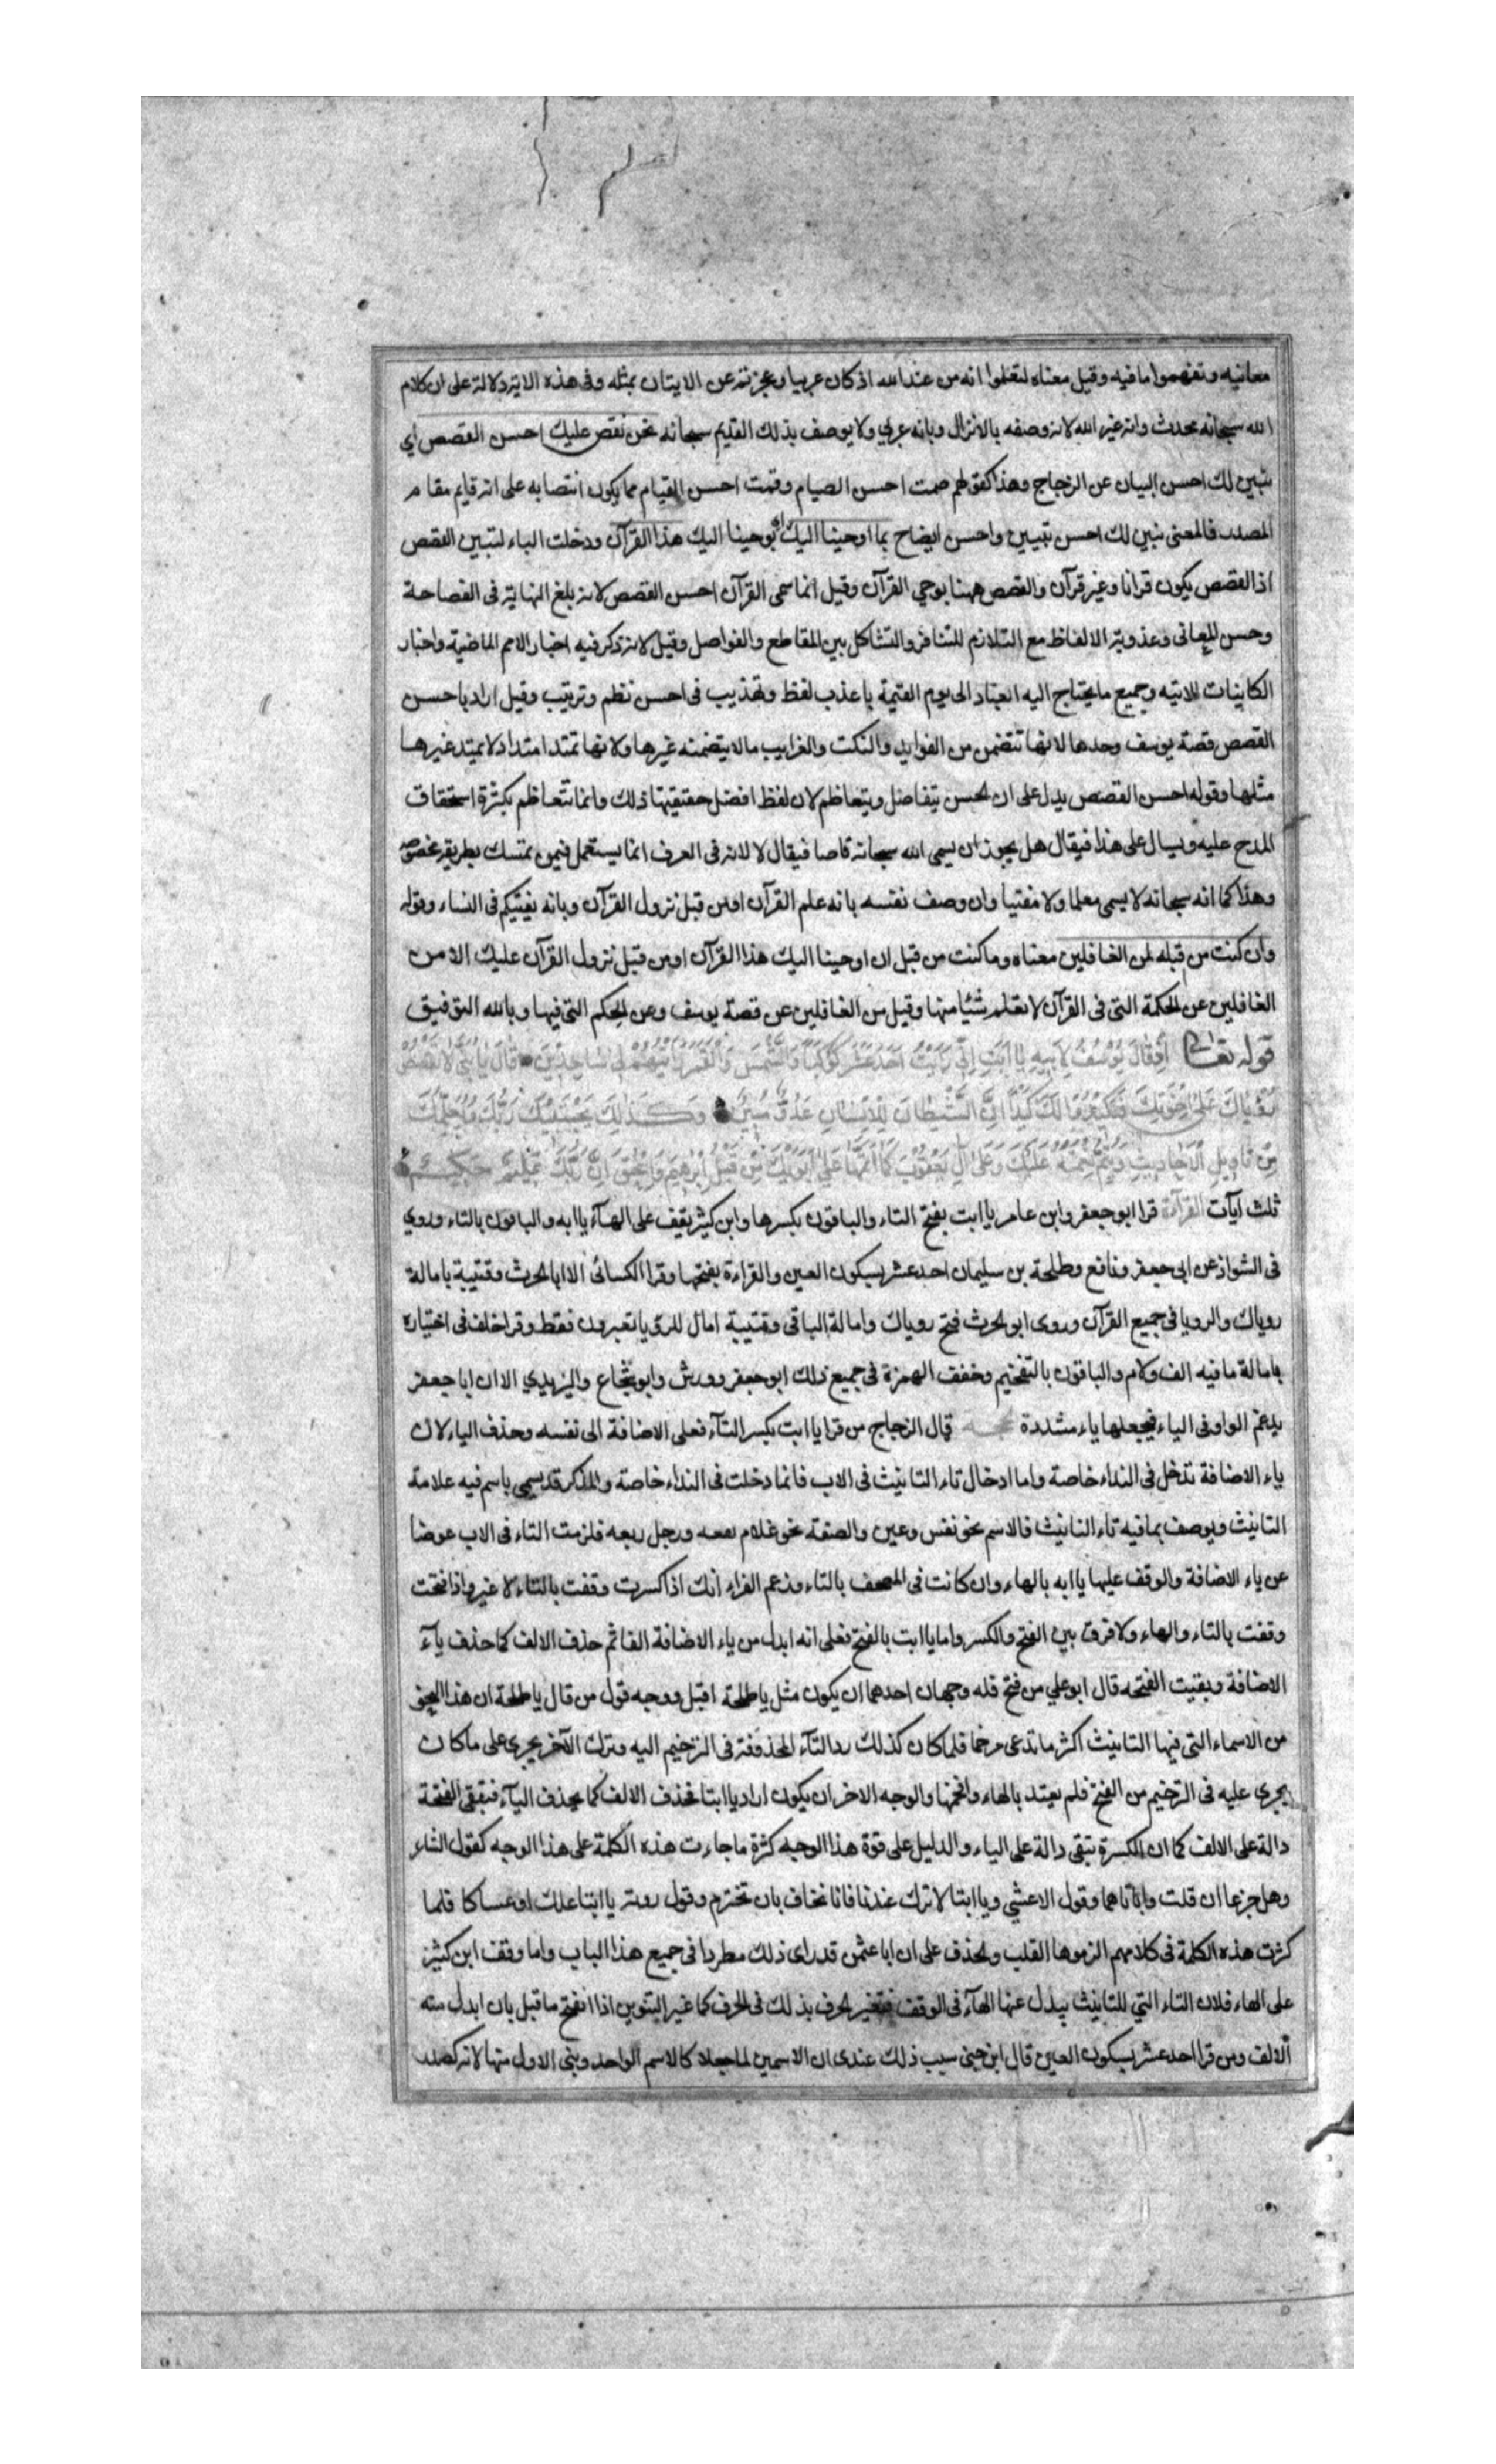 معانيه وتفهموا ما فيه وقيل معناه لتعلموا انه من عند الله اذ كان عربيا وعجزتم عن الاتيان بمثله وفي هذه الاية دلالة على ان كلام
الله سبحانه محدث وانه غير الله لانه وصفه بالانزال وبانه عربي ولا يوصف بذلك القديم سبحانه نحن نقص عليك احسن القصص اي
نبين لك احسن البيان عن الزجاج وهذا كقولهم صمت احسن الصيام وقمت احسن القيام مما يكون انتصابه على انه قايم مقام
المصدر فالمعنى نبين لك احسن تبيين واحسن ايضاح بما اوحينا اليك اي بوحينا اليك هذا القرآن ودخلت الباء لتبيين القصص
اذ القصص يكون قرانا وغير قرآن والقصص ههنا بوحي القرآن وقيل انما سمى القرآن احسن القصص لانه بلغ النهاية في الفصاحة
وحسن المعاني وعذوبة الالفاظ مع التلازم للتنافر والتشاكل بين المقاطع والفواصل وقيل لانه ذكر فيه اخبار الامم الماضية واخبار
الكاينات الاتيه وجميع ما يحتاج اليه العباد الى يوم القيمة باعذب لفظ وتهذيب في احسن نظم وترتيب وقيل اراد باحسن
القصص قصة يوسف وحدها لانها تتضمن من الفوايد والنكت والغرايب ما لا يتضمنه غيرها ولانها تمتد امتدادا لا يمتد غيرها
مثلها وقوله احسن القصص يدل على ان الحسن يتفاضل ويتعاظم لان لفظ افضل حقيقتها ذلك وانما تتعاظم بكثرة استحقاق
المدح عليه ويسال على هذا فيقال هل يجوز ان يسمى الله سبحانه قاصا فيقال لا لانه في العرف انما يستعمل فيمن يمتسك بطريقه مخصوصه
وهذا كما انه سبحانه لا يسمى معلما ولا مفتيا وان وصف نفسه بانه علم القرآن اومن قبل نزول القرآن وبانه يفتيكم في النساء وقوله
وان كنت من قبله لمن الغافلين معناه وما كنت من قبل ان اوحينا اليك هذا القرآن اومن قبل نزول القرآن عليك الا من
الغافلين عن الحكمة التي في القرآن لا تعلم شيئا منها وقيل من الغافلين عن قصة يوسف وعن الحكم التي فيها وبالله التوفيق
قوله تعالى اِذْ قَالَ يُوْسُفُ لِاَبِيهِ يَا اَبَتِ اِنّي رَاَيْتُ اَحَدَ عَشَرَ كَوْكَبًا وَالشَّمْسَ وَالْقَمَرَ رَاَيْتُهُمْ لِي سَاجِدِيْنَ قَالَ يَا بُنَيَّ لَا تَقْصُصْ
رُؤْيَاكَ عَلَى اِخْوَتِكَ فَيَكِيْدُوا لَكَ كَيْدًا اِنَّ الشَّيْطَانَ لِلْاِنْسَانِ عَدُوٌّ مُبِيْنٌ وَكَذَلِكَ يَجْتَبِيْكَ رَبُّكَ وَيُعَلِّمُكَ
مِنْ تَاوِيلِ الْاَحَادِيثِ وَيُتِمُّ نِعْمَتَهُ عَلَيْكَ وَعَلَى آلِ يَعْقُوْبَ كَمَا اَتَمَّهَا عَلَى اَبَوَيْكَ مِنْ قَبْلُ اِبْرهِيمَ وَاِسْحقَ اِنَّ رَبَّكَ عَلِيْمٌ حَكِيْمٌ
ثلث آيات القرآءة قرا ابو جعفر وابن عامر يا ابت بفتح التاء والباقون بكسرها وابن كثير يقف على الهآء يا ابه والباقون بالتاء وروي
في الشواذ عن ابي جعفر ونافع وطلحة بن سليمان احد عشر بسكون العين والقراءة بفتحها وقرا الكسائى الا ابا الحرث وقتيبة بامالة
روياك والرويا في جميع القرآن وروى ابو الحرث فتح روياك وامالة الباقي وقتيبة امال للرؤيا تعبرون فقط وقرا خلف في اختياره
بامالة ما فيه الف ولام والباقون بالتفخيم وخفف الهمزة في جميع ذلك ابو جعفر وورش وابو شجاع واليزيدي الا ان ابا جعفر
يدغم الواو في الياء فيجعلها ياء مشددة قال الزجاج من قرا يا ابت بكسر التآء فعلى الاضافة الى نفسه وحذف الياء لان
ياء الاضافة تدخل في النداء خاصة واما ادخال تاء التانيث في الاب فانما دخلت في النداء خاصة والمذكر قد يسمى باسم فيه علامة
التانيث ويوصف بما فيه تاء التانيث فالاسم نحو نفس وعين والصفة نحو غلام يفعه ورجل ربعه فلزمت التاء في الاب عوضا
عن ياء الاضافة والوقف عليها يا ابه بالهاء وان كانت في المصحف بالتاء وزعم الفراء انك اذا كسرت وقفت بالتاء لا غير واذا فتحت
وقفت بالتاء والهاء ولا فرق بين الفتح والكسر واما يا ابت بالفتح فعلى انه ابدل من ياء الاضافة الفا ثم حذف الالف كما حذف يآء
الاضافة وبقيت الفتحه قال ابو علي من فتح فله وجهان احدهما ان يكون مثل يا طلحة اقبل ووجه قول من قال يا طلحة ان هذا النحو
من الاسماء التي فيها التانيث اكثر ما تدعى مرخما فلما كان كذلك رد التآء المحذوفة في الترخيم اليه وترك الآخر يجري على ما كان
يجري عليه في الترخيم من الفتح فلم يعتد بالهاء واقحمها والوجه الاخر ان يكون اراد يا ابتا فحذف الالف كما يحذف اليآء فتبقى الفتحة
دالة على الالف كما ان الكسرة تبقى دالة على الياء والدليل على قوة هذا الوجه كثرة ما جاءت هذه الكلمة على هذا الوجه كقول الشاعر
وهل جزعا ان قلت وا باباهما وقول الاعشي ويا ابتا لا ترك عندنا فانا نخاف بان تخترم وقول روبه يا ابتا علك او عساكا فلما
كثرت هذه الكلمة في كلامهم الزموها القلب والحذف على ان ابا عثمن قد راى ذلك مطردا في جميع هذا الباب واما وقف ابن كثير
على الهاء فلان التاء التي للتانيث يبدل عنها الهآء في الوقف فتغير الحرف بذلك في الحرف كما غير التنوين اذا انفتح ما قبل بان ابدل منه
الالف ومن قرا احد عشر بسكون العين قال ابن جني سبب ذلك عندى ان الاسمين لما جعلا كالاسم الواحد وبني الاول منها لانه كصدر